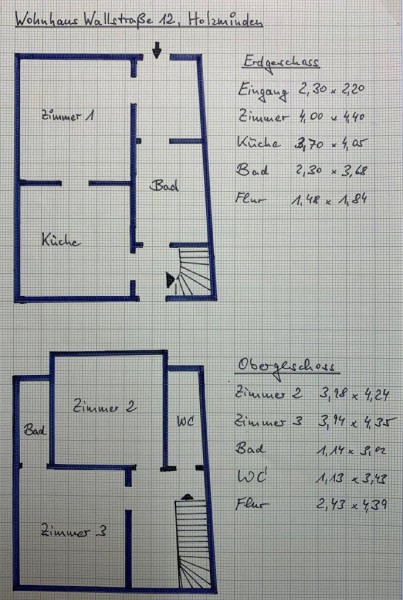 Wohnhaus Wallstraße 12, Holzminden
Erdgeschoss
Eingang 2,30 x 2,20
Zimmer 4,00 x 4,40
Küche 3,70 x 4,05
Bad 2,30 x 3,68
Flur 1,48 x 1,84
Zimmer 1
Bad
Küche
Obergeschoss
Zimmer 2 3,98 x 4,24
Zimmer 3 3,94 x 4,35
Bad 1,14 x 3,02
WC 1,13 x 3,43
Flur 2,43 x 4,39
Zimmer 2
WC
Bad
Zimmer 3